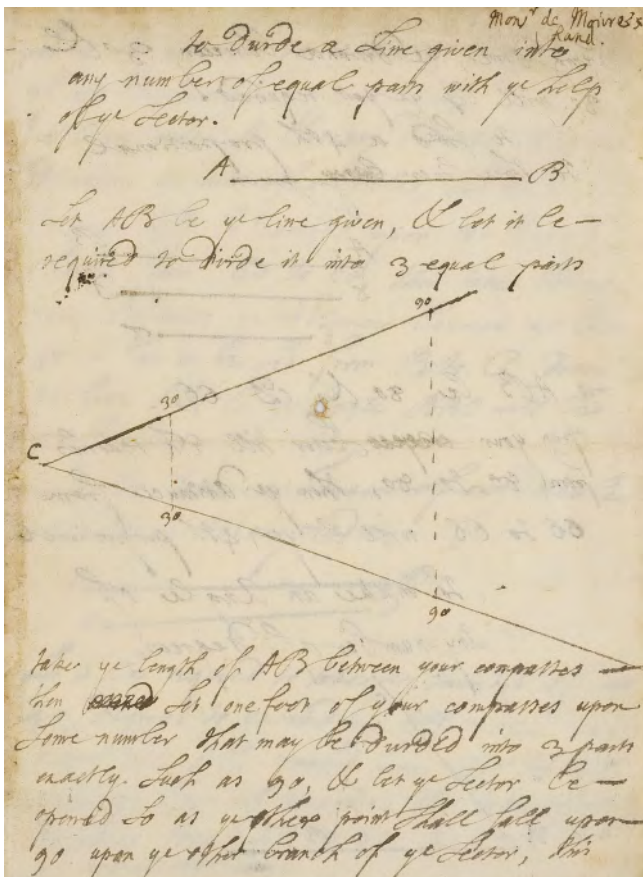 Monr de Moivre's
hand.
to divide a Line given into
any number of equal parts with ye help
of ye Sector.
A B
Let AB be ye line given, & let it be
required to divide it into 3 equal parts
90
30
C
30
90
take ye length of AB between your compasses
then set one foot of your compasses upon
some number that may be divided into 3 parts
exactly. Such as 90, & let ye Sector be
opened so as ye other point shall fall upon
90 upon ye other branch of ye Sector, this